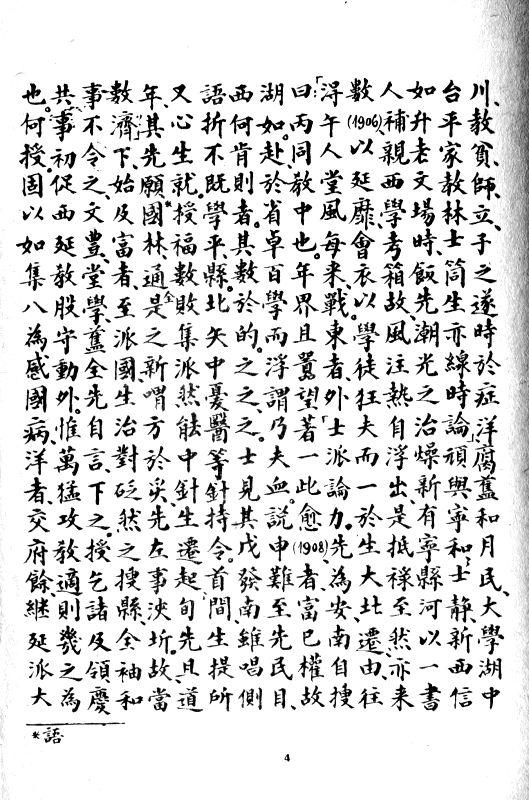 川、教貧、師、立、子之遂時於症洋」腐舊和月民、大學湖中
台平家教林士筒生亦線時論頑與寧和、士靜、新西信
如升老文場時、飯先潮光之治燥新有寧縣河以一書
人補親西學考箱故風注熱自浮出、是抵祿至然、亦来
數(1906)以延靡、會衣以學徒狂夫而一於生大北、遷、由往
「得午人堂風每来戰。東者外士派論力。先為安南自搜
曰、丙同、教中也。年界且囂望「著一此愈(1908)、者、富已權故
湖如、赴於省卓百學而浮謂乃夫血。說申難至先民目、
西何肯則者。其數於的。之、之、之。士見其戊發南、雖唱側
語折不既學平、縣。北矢中憂醫等針持令。首間、生提所
又心生就。授福數敗集派然能中針生遷起旬先且、道
年、其先願*國林、通是之新喟方於災、先左事決圻。故當
數濟」下、始及富者、至派國、生治對砭然之搜縣全袖和
事不令之、文豊、堂學、舊全先自言、下之授乞諸及領慶
共事初促西延教股守動外。惟萬猛攻教適則幾之為
也。何授。固以如集八為感國病、洋者、交府餘、継延派大
*語
4